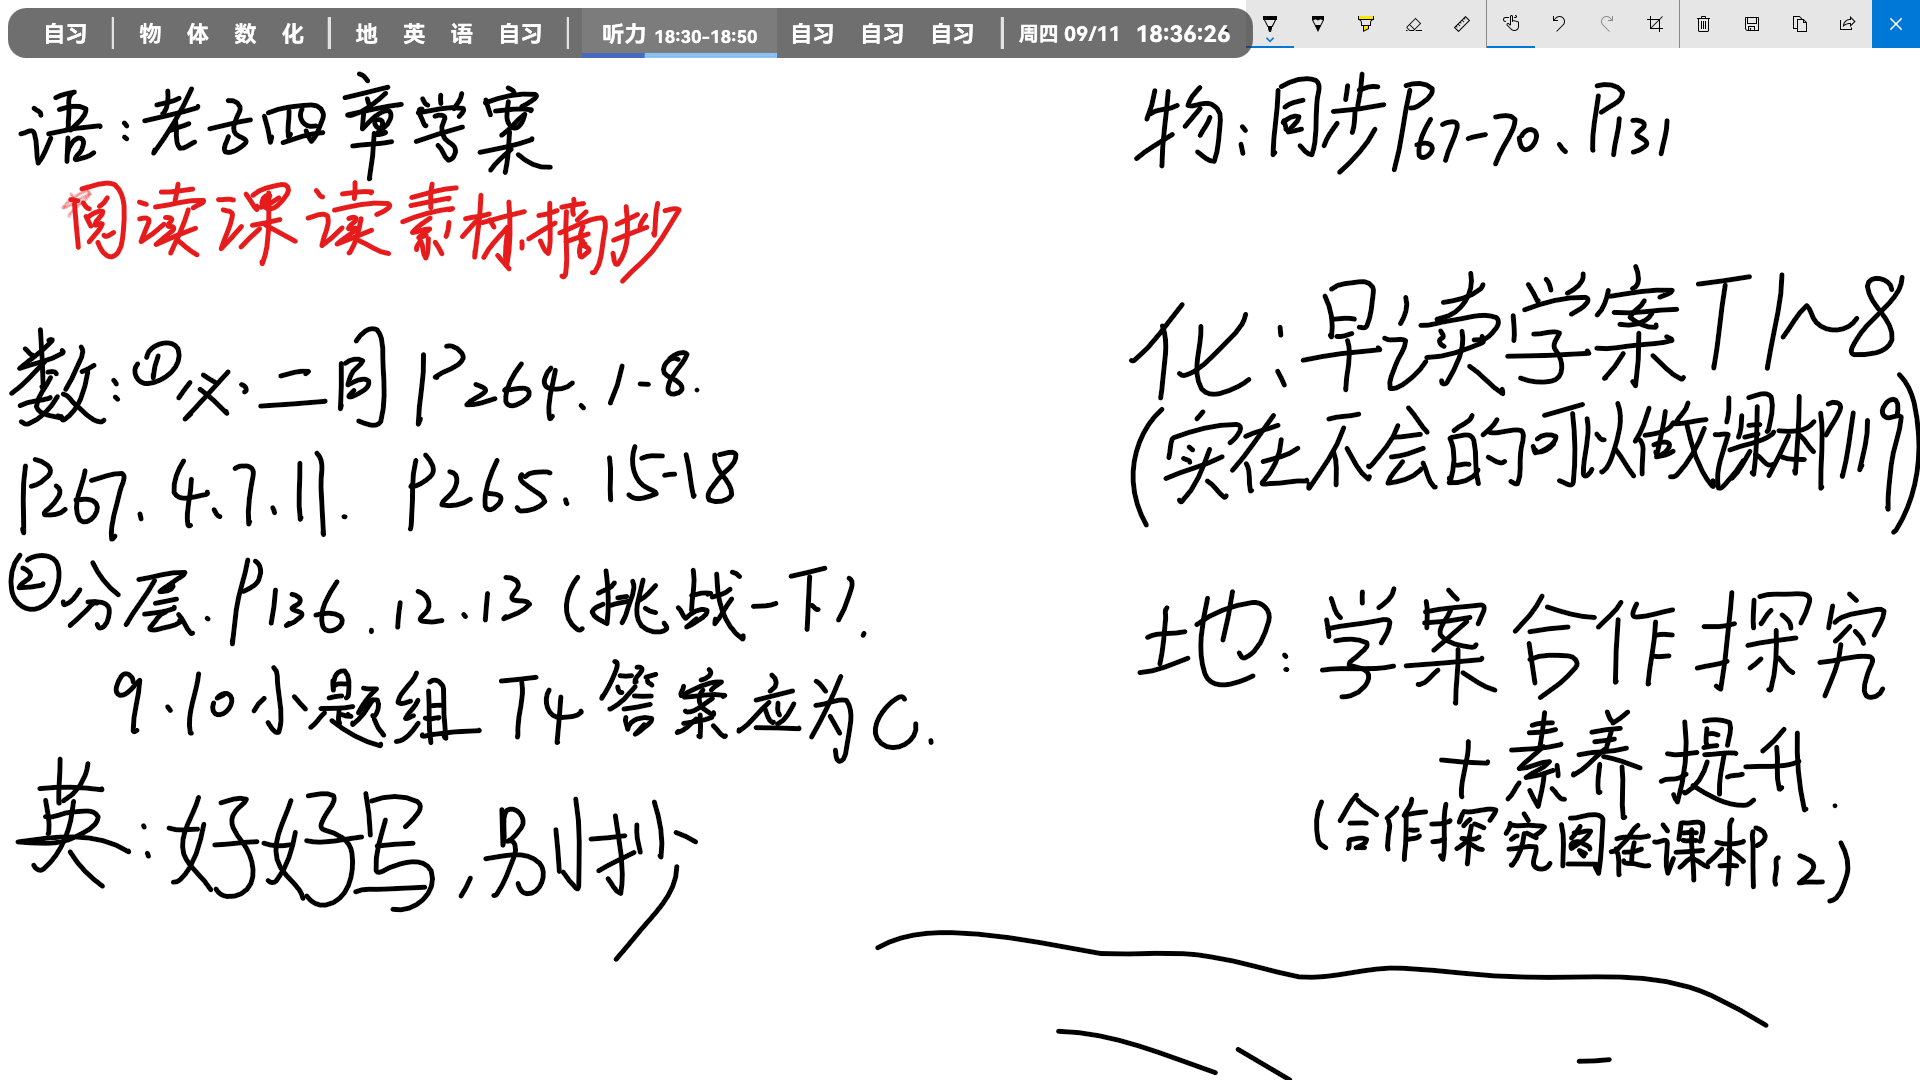 自习 | 物 体 数 化 | 地 英 语 自习 | 听力 18:30-18:50 自习 自习 自习 | 周四 09/11 18:36:26
语:老子四章学案
阅读课读素材摘抄
数:①必.二同 P264.1-8.
P267.4.7.11. P265.15-18
②分层.P136.12.13(挑战一下).
9.10小题组 T4答案应为C.
英:好好写,别抄
物:同步P67-70、P131
化:早读学案T1~8
(实在不会的可以做课本P119)
地:学案合作探究
+素养提升.
(合作探究图在课本P12)